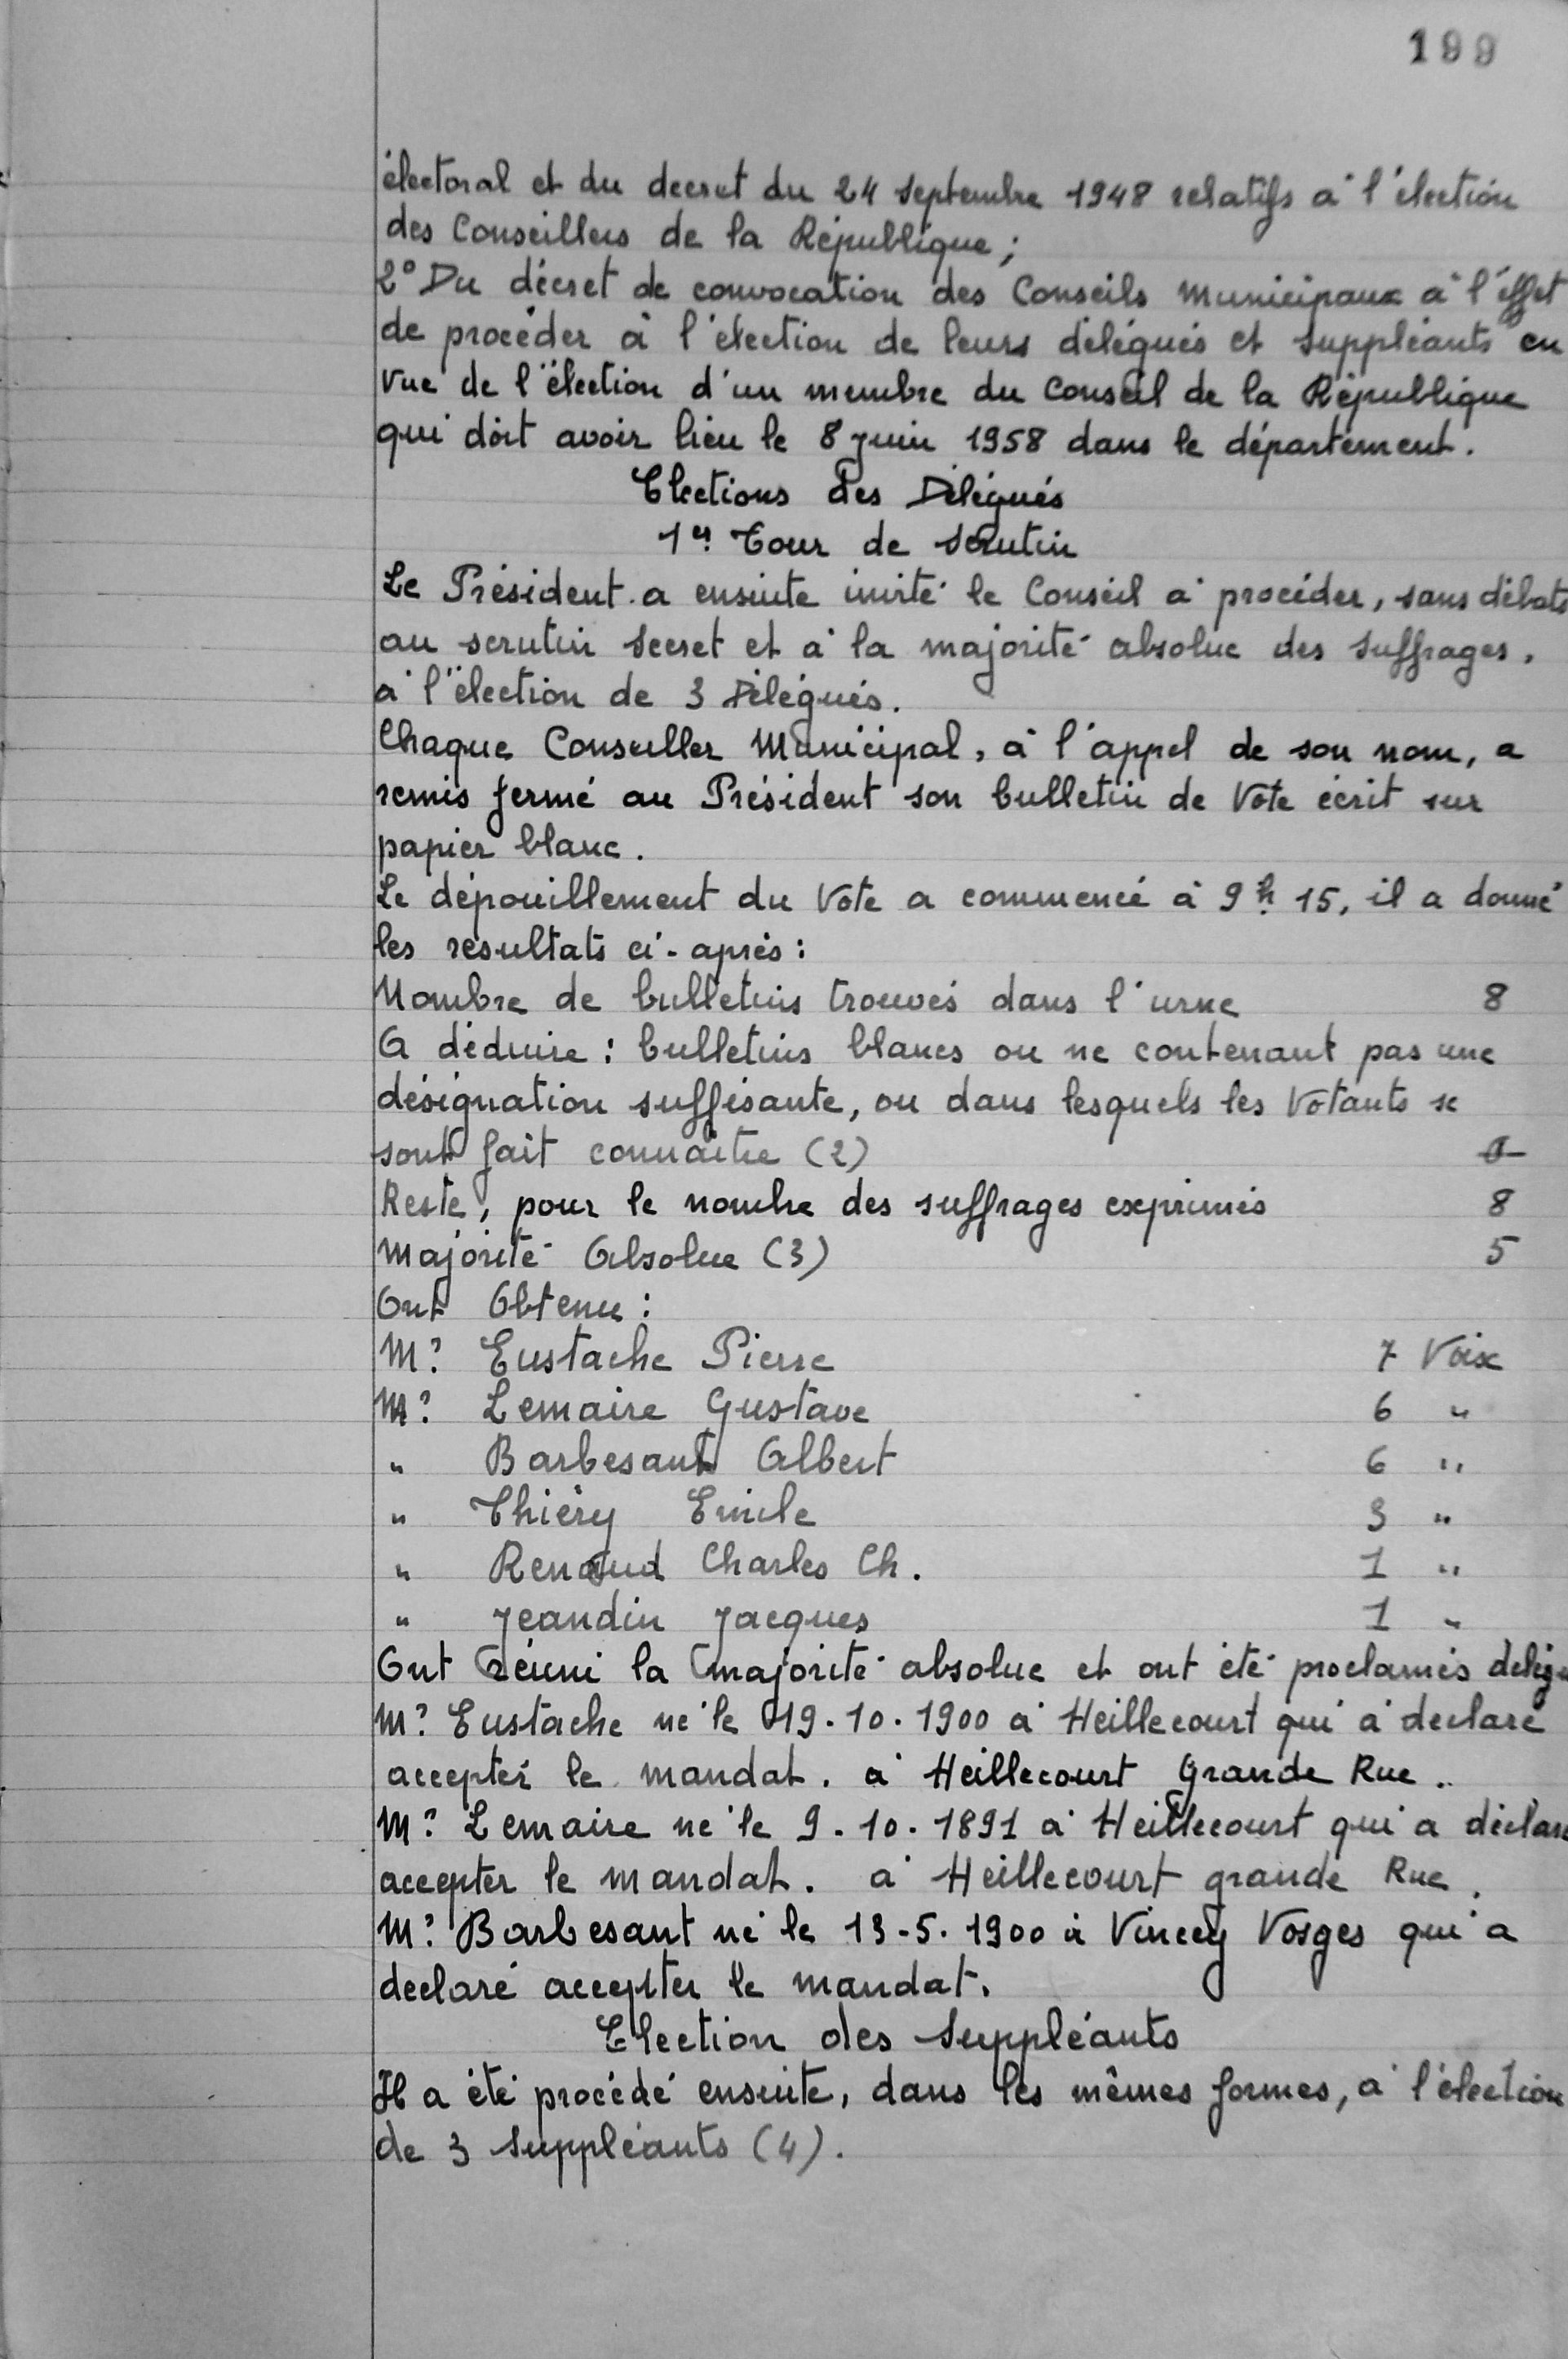 199
électoral et du decret du 24 septembre 1948 relatifs à l'élection
des Conseillers de la République ;
2° Du décret de convocation des Conseils Municipaux à l'éffet
de procéder à l'élection de leurs délégués et suppléants en
vue de l'élection d'un membre du Conseil de la République
qui doit avoir lieu le 8 juin 1958 dans le département.
Elections des Délégués
1er Tour de scrutin
Le Président a ensuite invité le Conseil à procéder, sans débats
au scrutin secret et à la majorité absolue des suffrages,
à l'élection de 3 Délégués.
Chaque Conseiller Municipal, à l'appel de son nom, a
remis fermé au Président son bulletin de Vote écrit sur
papier blanc.
Le dépouillement du Vote a commencé à 9h 15, il a donné
les résultats ci-après :
Nombre de bulletins trouvés dans l'urne 8
A déduire : bulletins blancs ou ne contenant pas une
désignation suffisante, ou dans lesquels les Votants se
sont fait connaître (2) 0
Reste, pour le nombre des suffrages exprimés 8
Majorité Absolue (3) 5
Ont Obtenu :
Mr Eustache Pierre 7 Voix
Mr Lemaire Gustave 6 "
" Barbesant Albert 6 "
" Thiéry Emile 3 "
" Renaud Charles Ch. 1 "
" Jeandin Jacques 1 "
Ont réuni la majorité absolue et ont été proclamés délégu
Mr Eustache né le 19.10.1900 à Heillecourt qui à déclaré
accepter le mandat. à Heillecourt Grande Rue.
Mr Lemaire né le 9.10.1891 à Heillecourt qui a déclaré
accepter le mandat. à Heillecourt grande Rue.
Mr Barbesant né le 13-5.1900 à Vincey Vosges qui a
declaré accepter le mandat.
Election des Suppléants
Il a été procédé ensuite, dans les mêmes formes, à l'élection
de 3 suppléants (4).